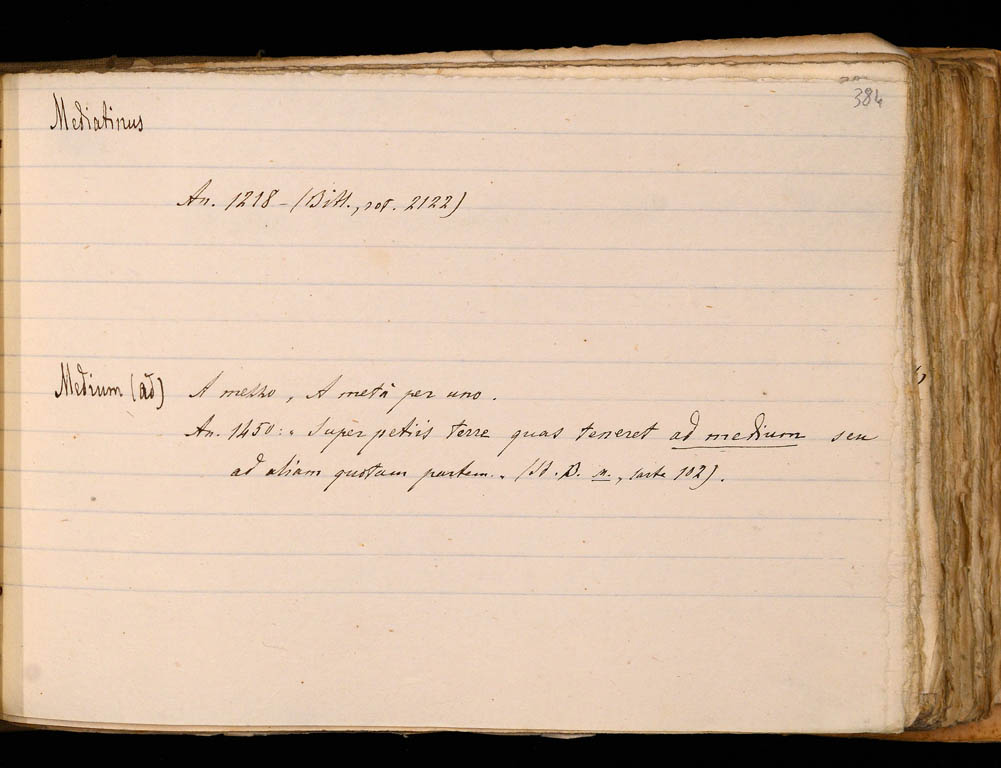 384
Mediatinus
An. 1218 - (Bitt., rot. 2122)
Medium (ad) A mezzo, A metà per uno.
An. 1450: « Super petiis terre quas teneret ad medium seu
ad aliam quotam partem. » (St. B. n., carte 102).